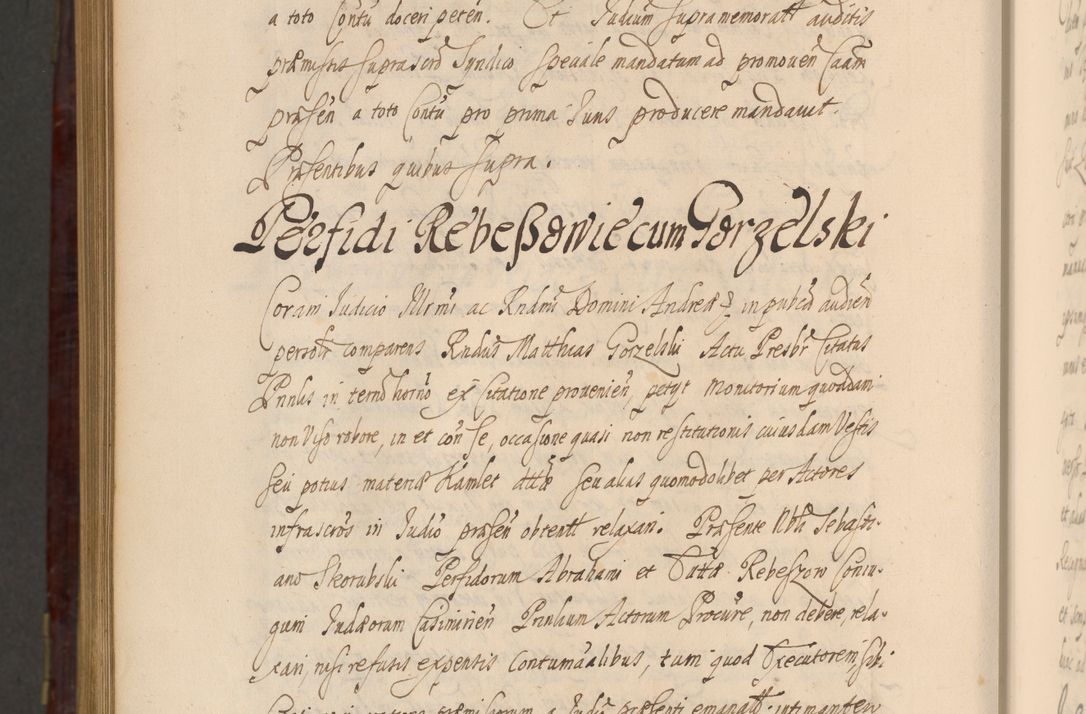 a toto Contũ doceri peten̄. Et Judium supramemoratt auditis
præmissis suprascrõ Syndico speciale mandatum ad promouen̄ Caam
præsen̄ a toto Contũ pro prima Juris producere mandauit.
Præsentibus quibus supra.
Perfidi Rebeßowie cum Gorzelski
Coram Judicio Illrmi ac Rndmi Domini Andreæ in pubca audien̄
persolr comparens Rndus Matthias Gorzelski Actu Presbr Citatus
Prinlis in termõ hornõ ex Citatione prouenien̄, petyt monitorium quoddam
non Viso robore, in et con se, occasione quasi non restitutionis cuiusdam Vestis
seu potius materiæ Kamlet dttæ seu alias quomodolibet per Actores
infrascros in Judio præsen̄ obtentt relaxari. Præsente Nbli Sebasti-
ano Skorubski Perfidorum Abrahami et Dutæ Rebeszow Coniu-
gum Judæorum Casimirien̄ Prinlium Actorum Procure, non debere rela-
xari, nisi refusis expensis Contumacialibus, tum quod Executorem sibi
præmissorum a Judio præsenti emanatt intimantem